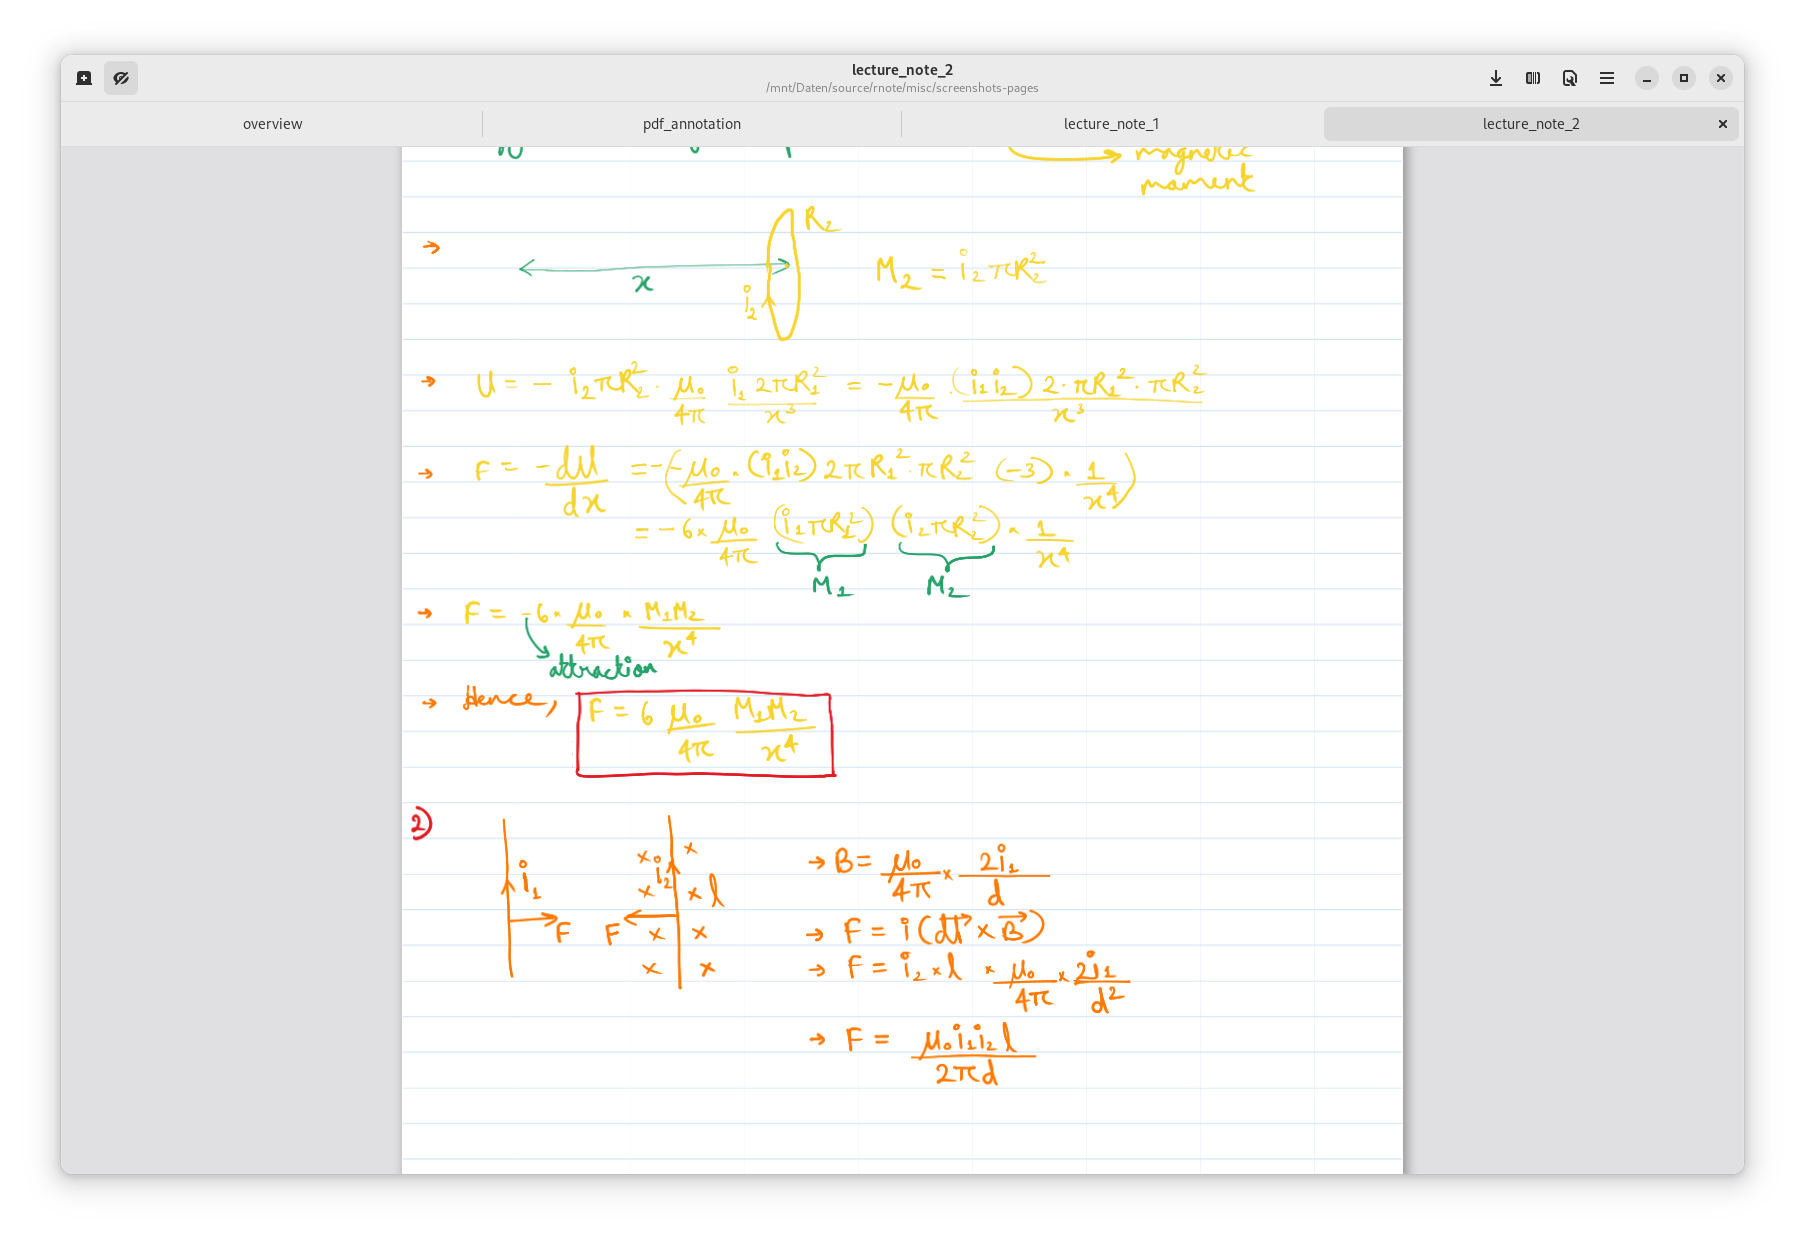 lecture_note_2
/mnt/Daten/source/rnote/misc/screenshots-pages
overview
pdf_annotation
lecture_note_1
lecture_note_2
magnetic
mament
→
R₂
x
i₂
M₂ = i₂ πR₂²
→ U = - i₂πR₂² · μ₀/4π i₁ 2πR₁²/x³ = -μ₀/4π · (i₁i₂) 2·πR₁²·πR₂²/x³
→ F = -dU/dx = -(-μ₀/4π · (i₁i₂) 2πR₁²·πR₂² (-3) · 1/x⁴)
= -6 × μ₀/4π (i₁πR₁²) (i₂πR₂²) × 1/x⁴
M₁ M₂
→ F = -6 × μ₀/4π × M₁M₂/x⁴
attraction
→ Hence, F = 6 μ₀/4π M₁M₂/x⁴
2)
i₁
F
F
i₂
l
→ B = μ₀/4π × 2i₁/d
→ F = i(dl⃗ × B⃗)
→ F = i₂ × l × μ₀/4π × 2i₁/d²
→ F = μ₀i₁i₂l/2πd